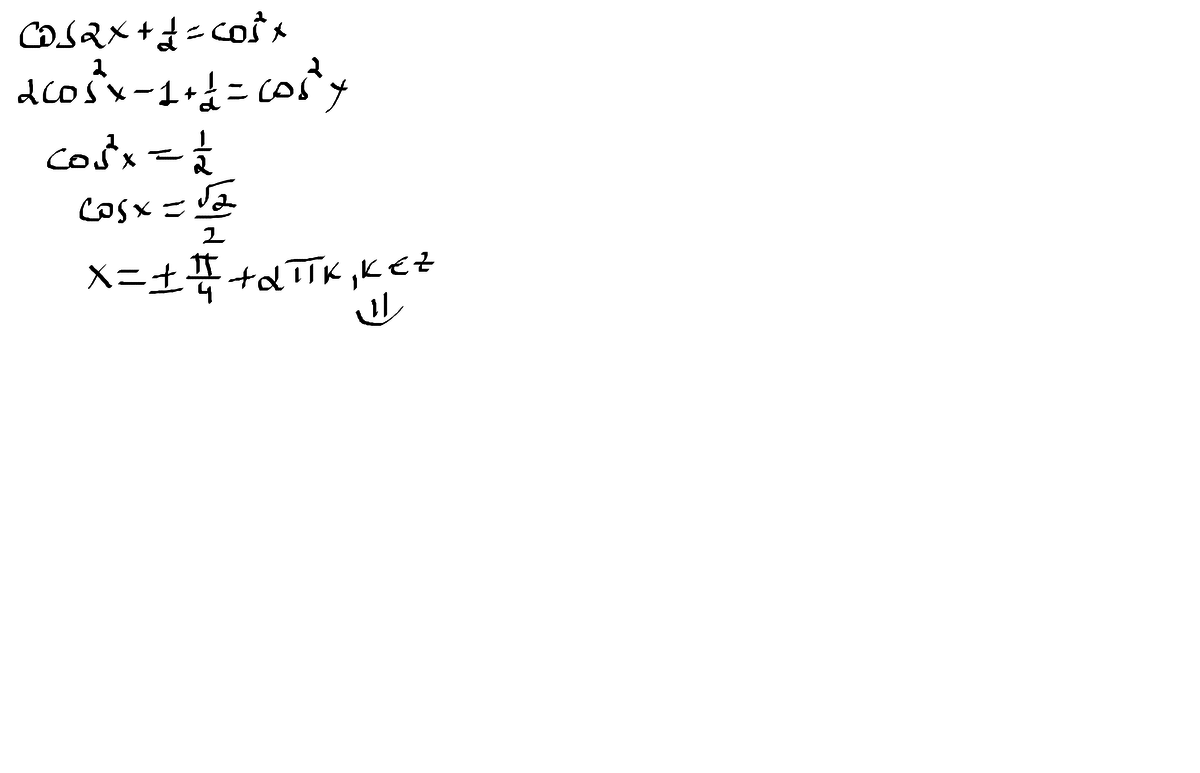 cos2x + 1/2 = cos²x
2cos²x - 1 + 1/2 = cos²x
cos²x = 1/2
cosx = √2/2
x = ± π/4 + 2πk, k ∈ z